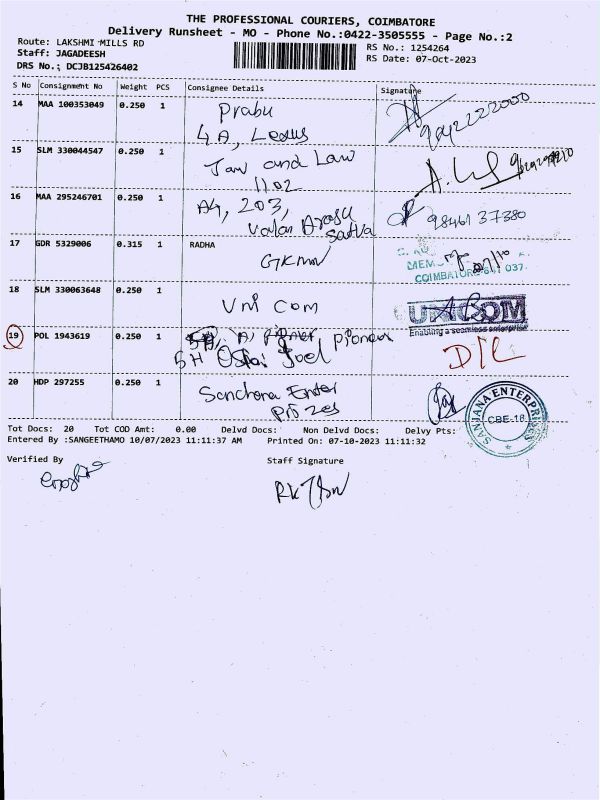 THE PROFESSIONAL COURIERS, COIMBATORE
Delivery Runsheet - MO - Phone No.:0422-3505555 - Page No.:2
Route: LAKSHMI MILLS RD
Staff: JAGADEESH
DRS No.: DCJB125426402
RS No.: 1254264
RS Date: 07-Oct-2023
S No Consignment No Weight PCS Consignee Details Signature
14 MAA 100353049 0.250 1 Prabu
4A, Lexus
9042222000
15 SLM 330044547 0.250 1 Jaw and Law
1102
16 MAA 295246701 0.250 1 A4, 203,
Valan Arasu
Satva
98461 37380
17 GDR 5329006 0.315 1 RADHA
GKMM
COIMBATORE 641 037
18 SLM 330063648 0.250 1 Uni Com
UNICOM
Enabling a seamless enterprise
19 POL 1943619 0.250 1 Pioneer
5H
D/L
20 HDP 297255 0.250 1 Sanchana Enter
Prizes
SANJANA ENTERPRISES
CBE-18
Tot Docs: 20 Tot COD Amt: 0.00 Delvd Docs: Non Delvd Docs: Delvy Pts:
Entered By :SANGEETHAMO 10/07/2023 11:11:37 AM Printed On: 07-10-2023 11:11:32
Verified By Staff Signature